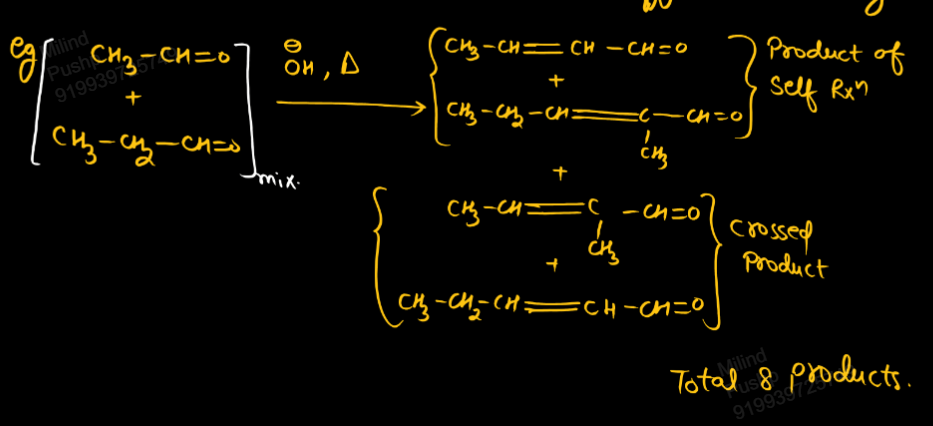 eg
CH₃–CH=O
+
CH₃–CH₂–CH=O
mix.
⊖
OH, Δ
CH₃–CH=CH–CH=O
+
CH₃–CH₂–CH=C–CH=O
CH₃
Product of
Self Rxⁿ
+
CH₃–CH=C–CH=O
CH₃
+
CH₃–CH₂–CH=CH–CH=O
Crossed
Product
Total 8 products.
Milind
Milind